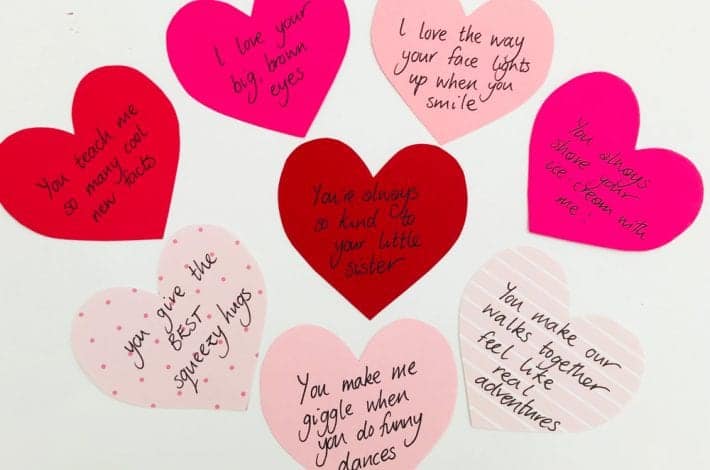 I love your
big, brown
eyes
I love the way
your face lights
up when you
smile
You teach me
so many cool
new facts
You're always
so kind to
your little
sister
You always
share your
ice cream with
me!
you give the
BEST
squeezy hugs
You make me
giggle when
you do funny
dances
You make our
walks together
feel like
real
adventures